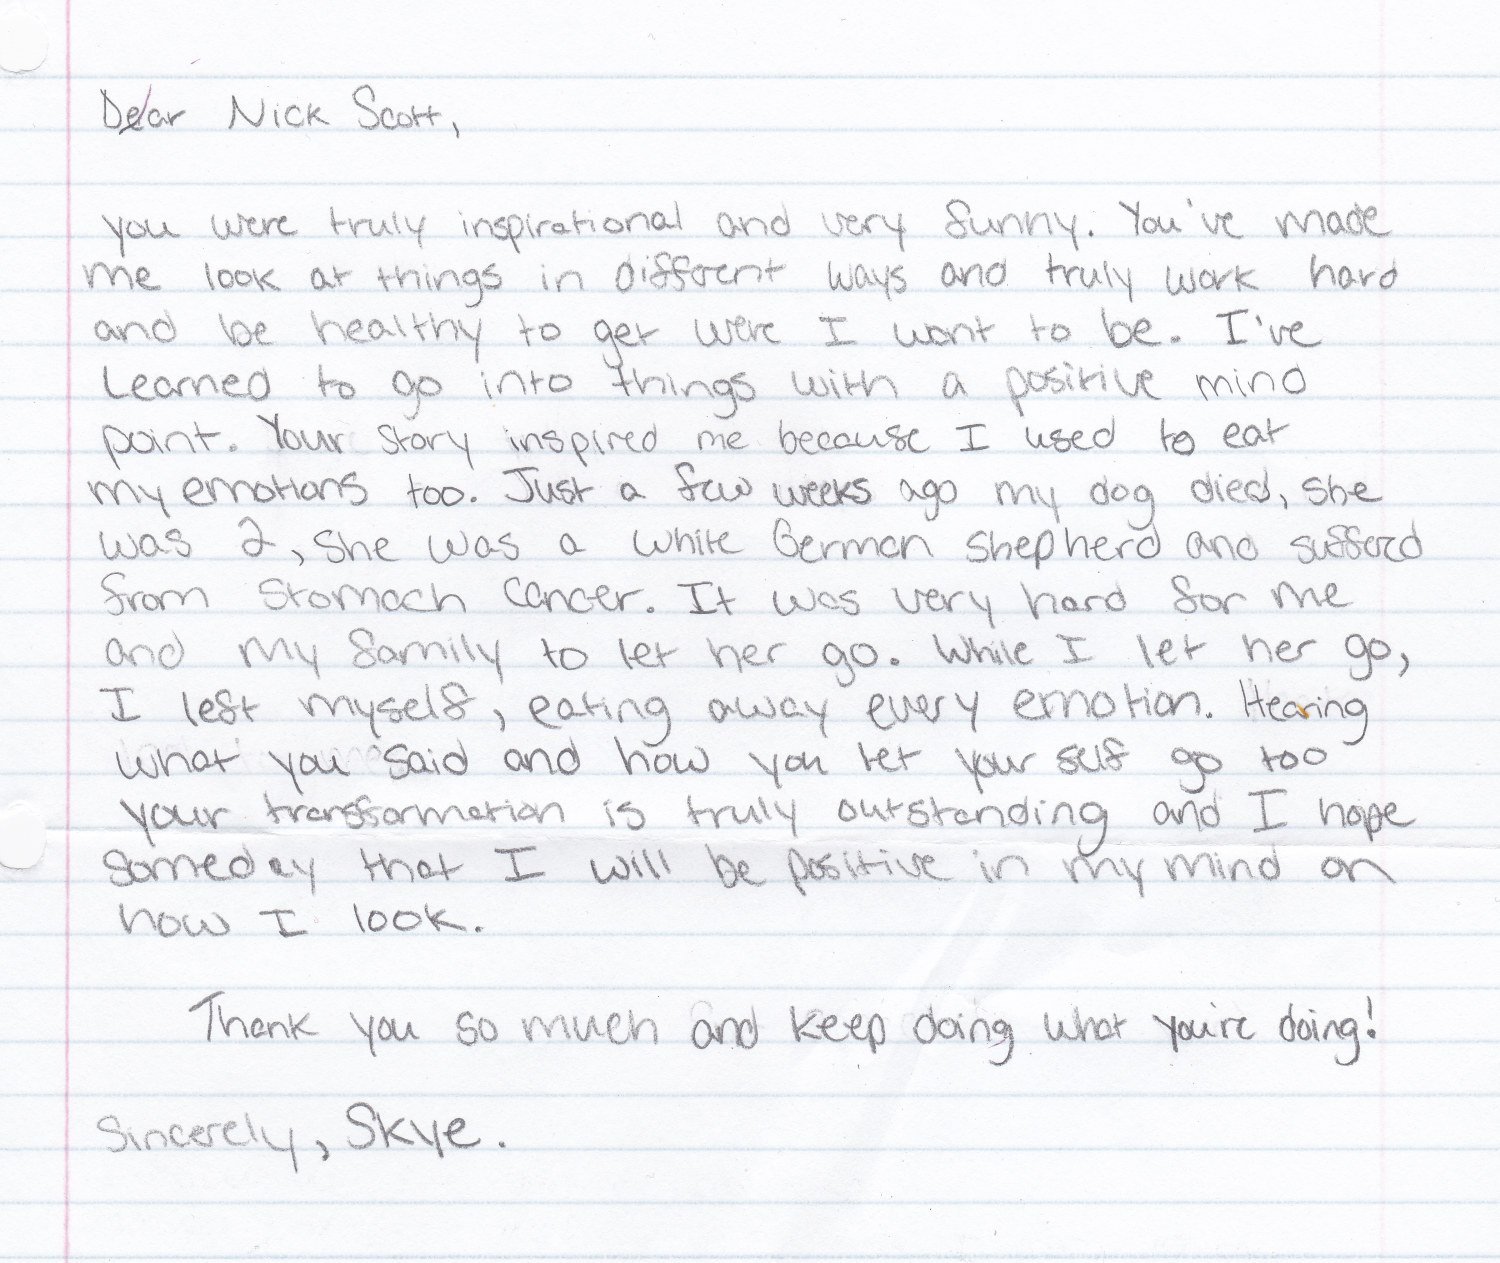 Dear Nick Scott,
you were truly inspirational and very funny. You've made
me look at things in different ways and truly work hard
and be healthy to get were I want to be. I've
Learned to go into things with a positive mind
point. Your story inspired me because I used to eat
my emotions too. Just a few weeks ago my dog died, she
was 2, she was a white German shepherd and sufferd
from stomach cancer. It was very hard for me
and my family to let her go. While I let her go,
I left myself, eating away every emotion. Hearing
what you said and how you let your self go too
your transformation is truly outstanding and I hope
someday that I will be positive in my mind on
how I look.
Thank you so much and keep doing what you're doing!
Sincerely, Skye.